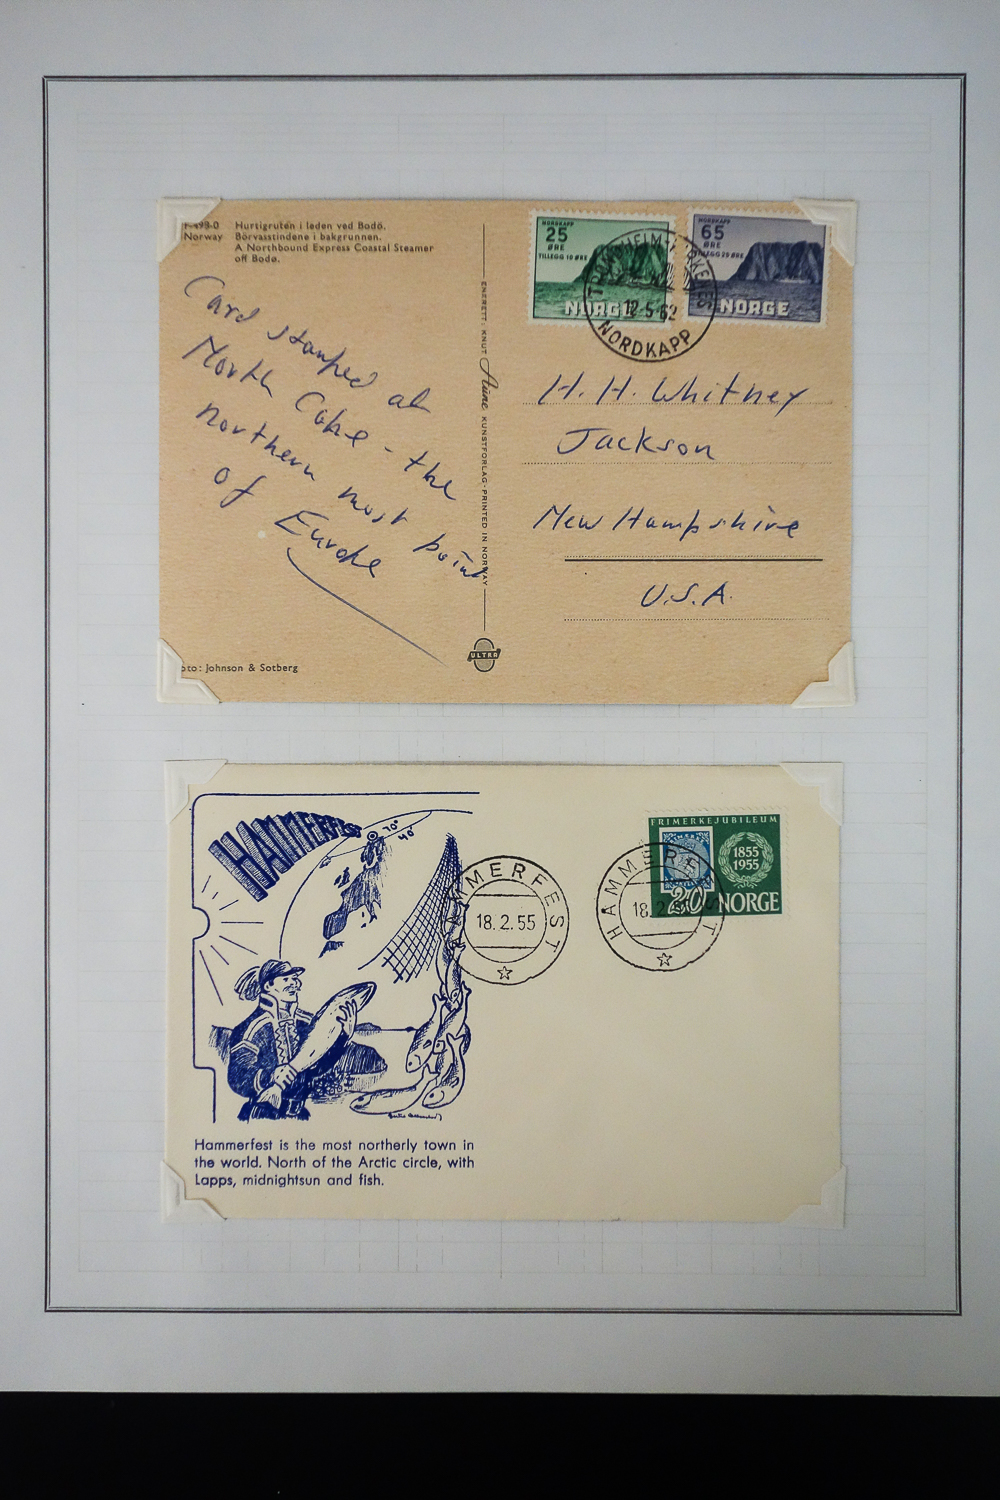 F-498-0 Hurtigruten i leden ved Bodö.
Norway Börvasstindene i bakgrunnen.
A Northbound Express Coastal Steamer
off Bodø.
Card stamped at
North Cape - the
northern most point
of Europe
oto: Johnson & Sotberg
ENERETT: KNUT Aune KUNSTFORLAG · PRINTED IN NORWAY
ULTRA
NORDKAPP
25
ØRE
TILLEGG 10 ØRE
NORGE
NORDKAPP
65
ØRE
TILLEGG 25 ØRE
NORGE
TRONDHEIM-KIRKENES
12-5-62
NORDKAPP
H. H. Whitney
Jackson
New Hampshire
U.S.A.
HAMMERFEST
70°
40°
HAMMERFEST
18.2.55
HAMMERFEST
18.2.55
FRIMERKEJUBILEUM
1855
1955
20 NORGE
Hammerfest is the most northerly town in
the world. North of the Arctic circle, with
Lapps, midnightsun and fish.